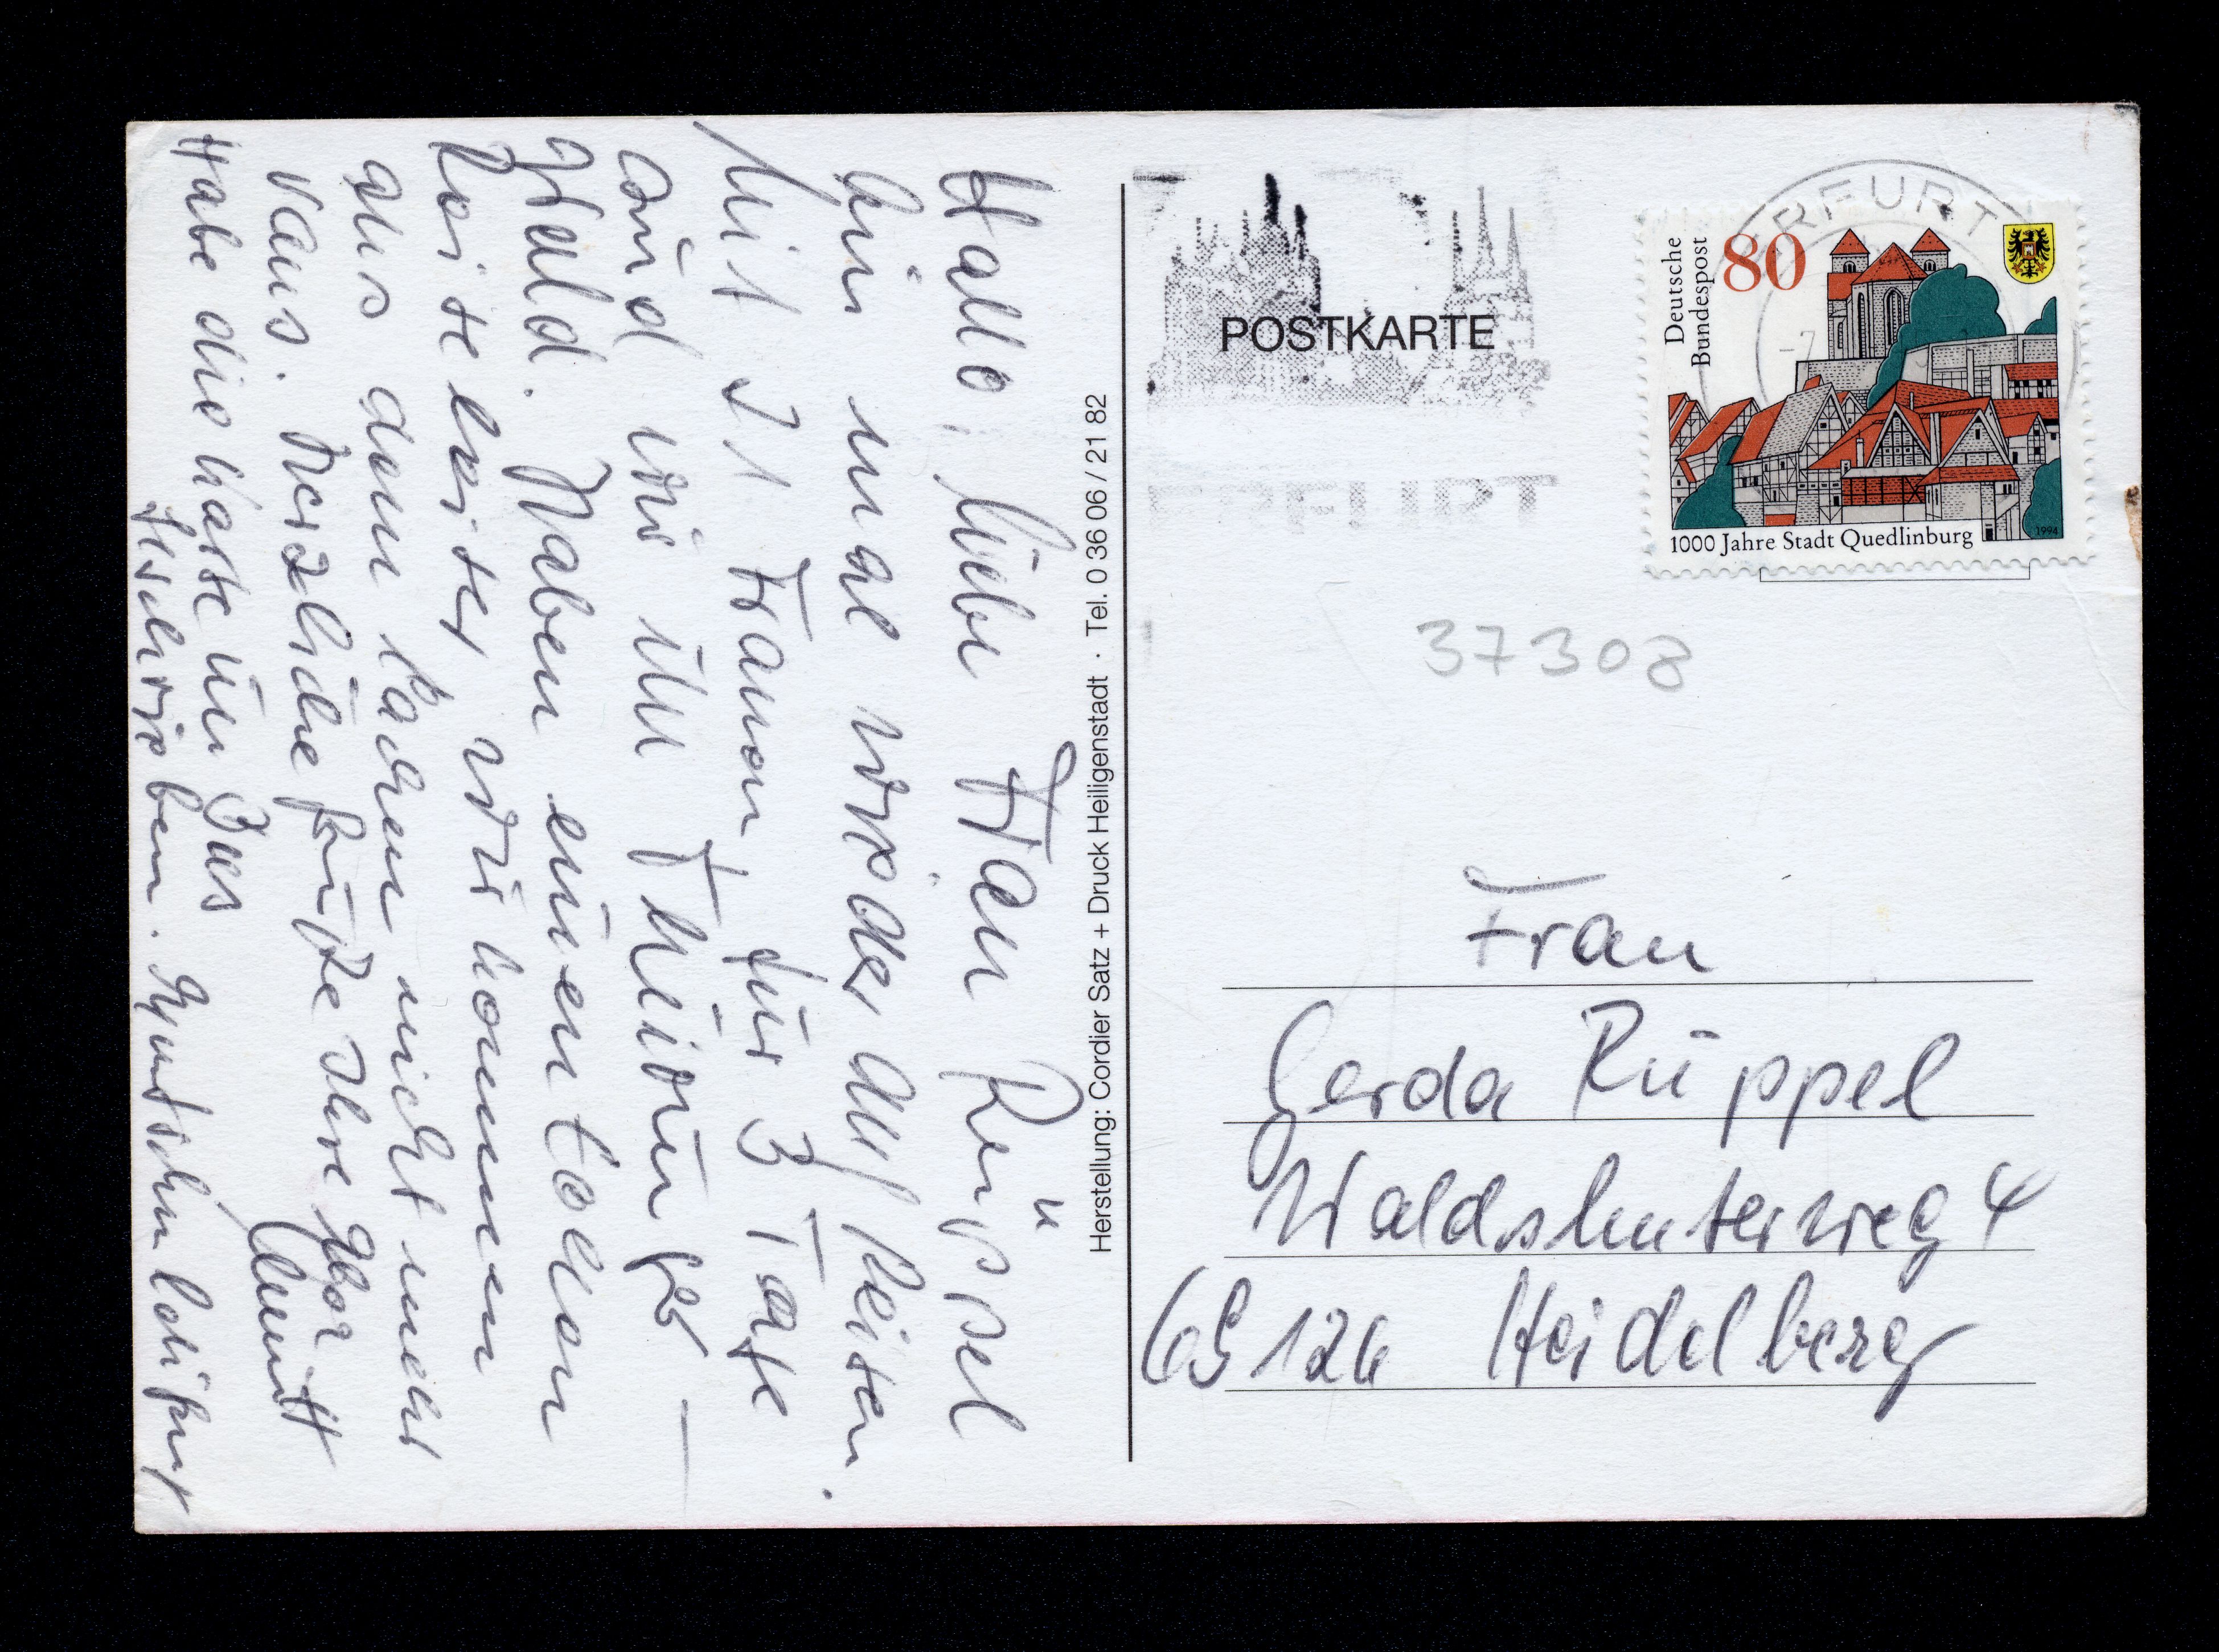 Hallo, liebe Frau Rüppel
bin mal wieder auf Reisen.
Mit 21 Frauen für 3 Tage
sind wir im Thüringer-
Wald. Haben einen tollen
Reiseleiter, wir kommen
aus dem lachen nicht mehr
raus. Herzliche Grüße Ihre
Habe die Karte im Bus
geschrieben. Entschuldigung
Herstellung: Cordier Satz + Druck Heiligenstadt · Tel. 0 36 06 / 21 82
POSTKARTE
ERFURT
ERFURT
Deutsche
Bundespost
80
1994
1000 Jahre Stadt Quedlinburg
37308
Frau
Gerda Rüppel
Waldshuterweg 4
69126 Heidelberg